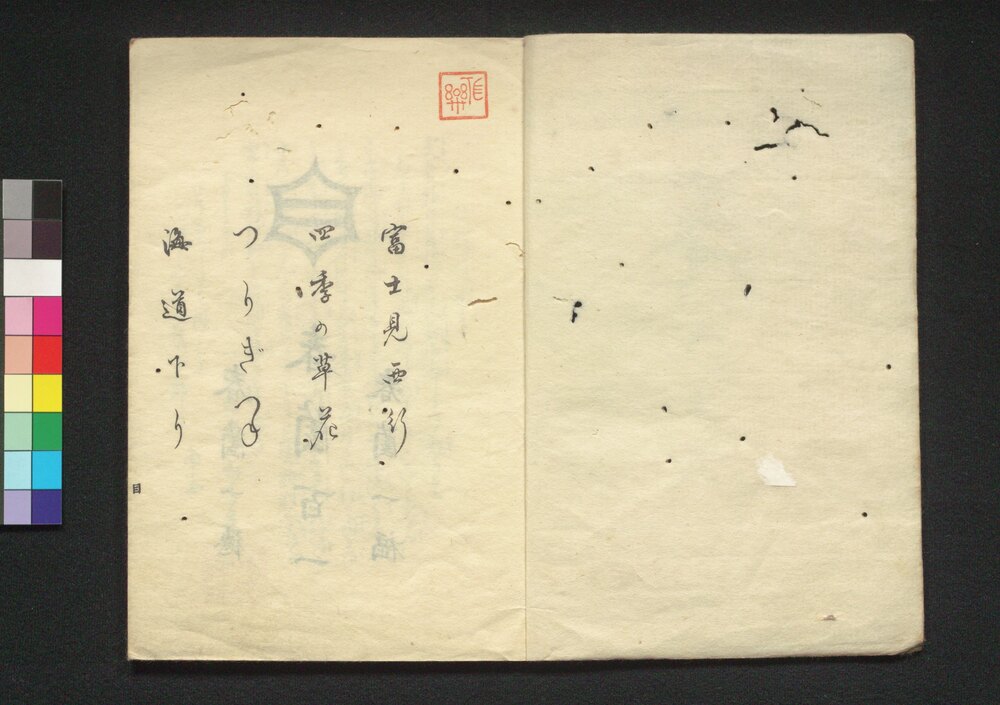 富士見西行
四季の草花
つりぎつね
海道下り
目